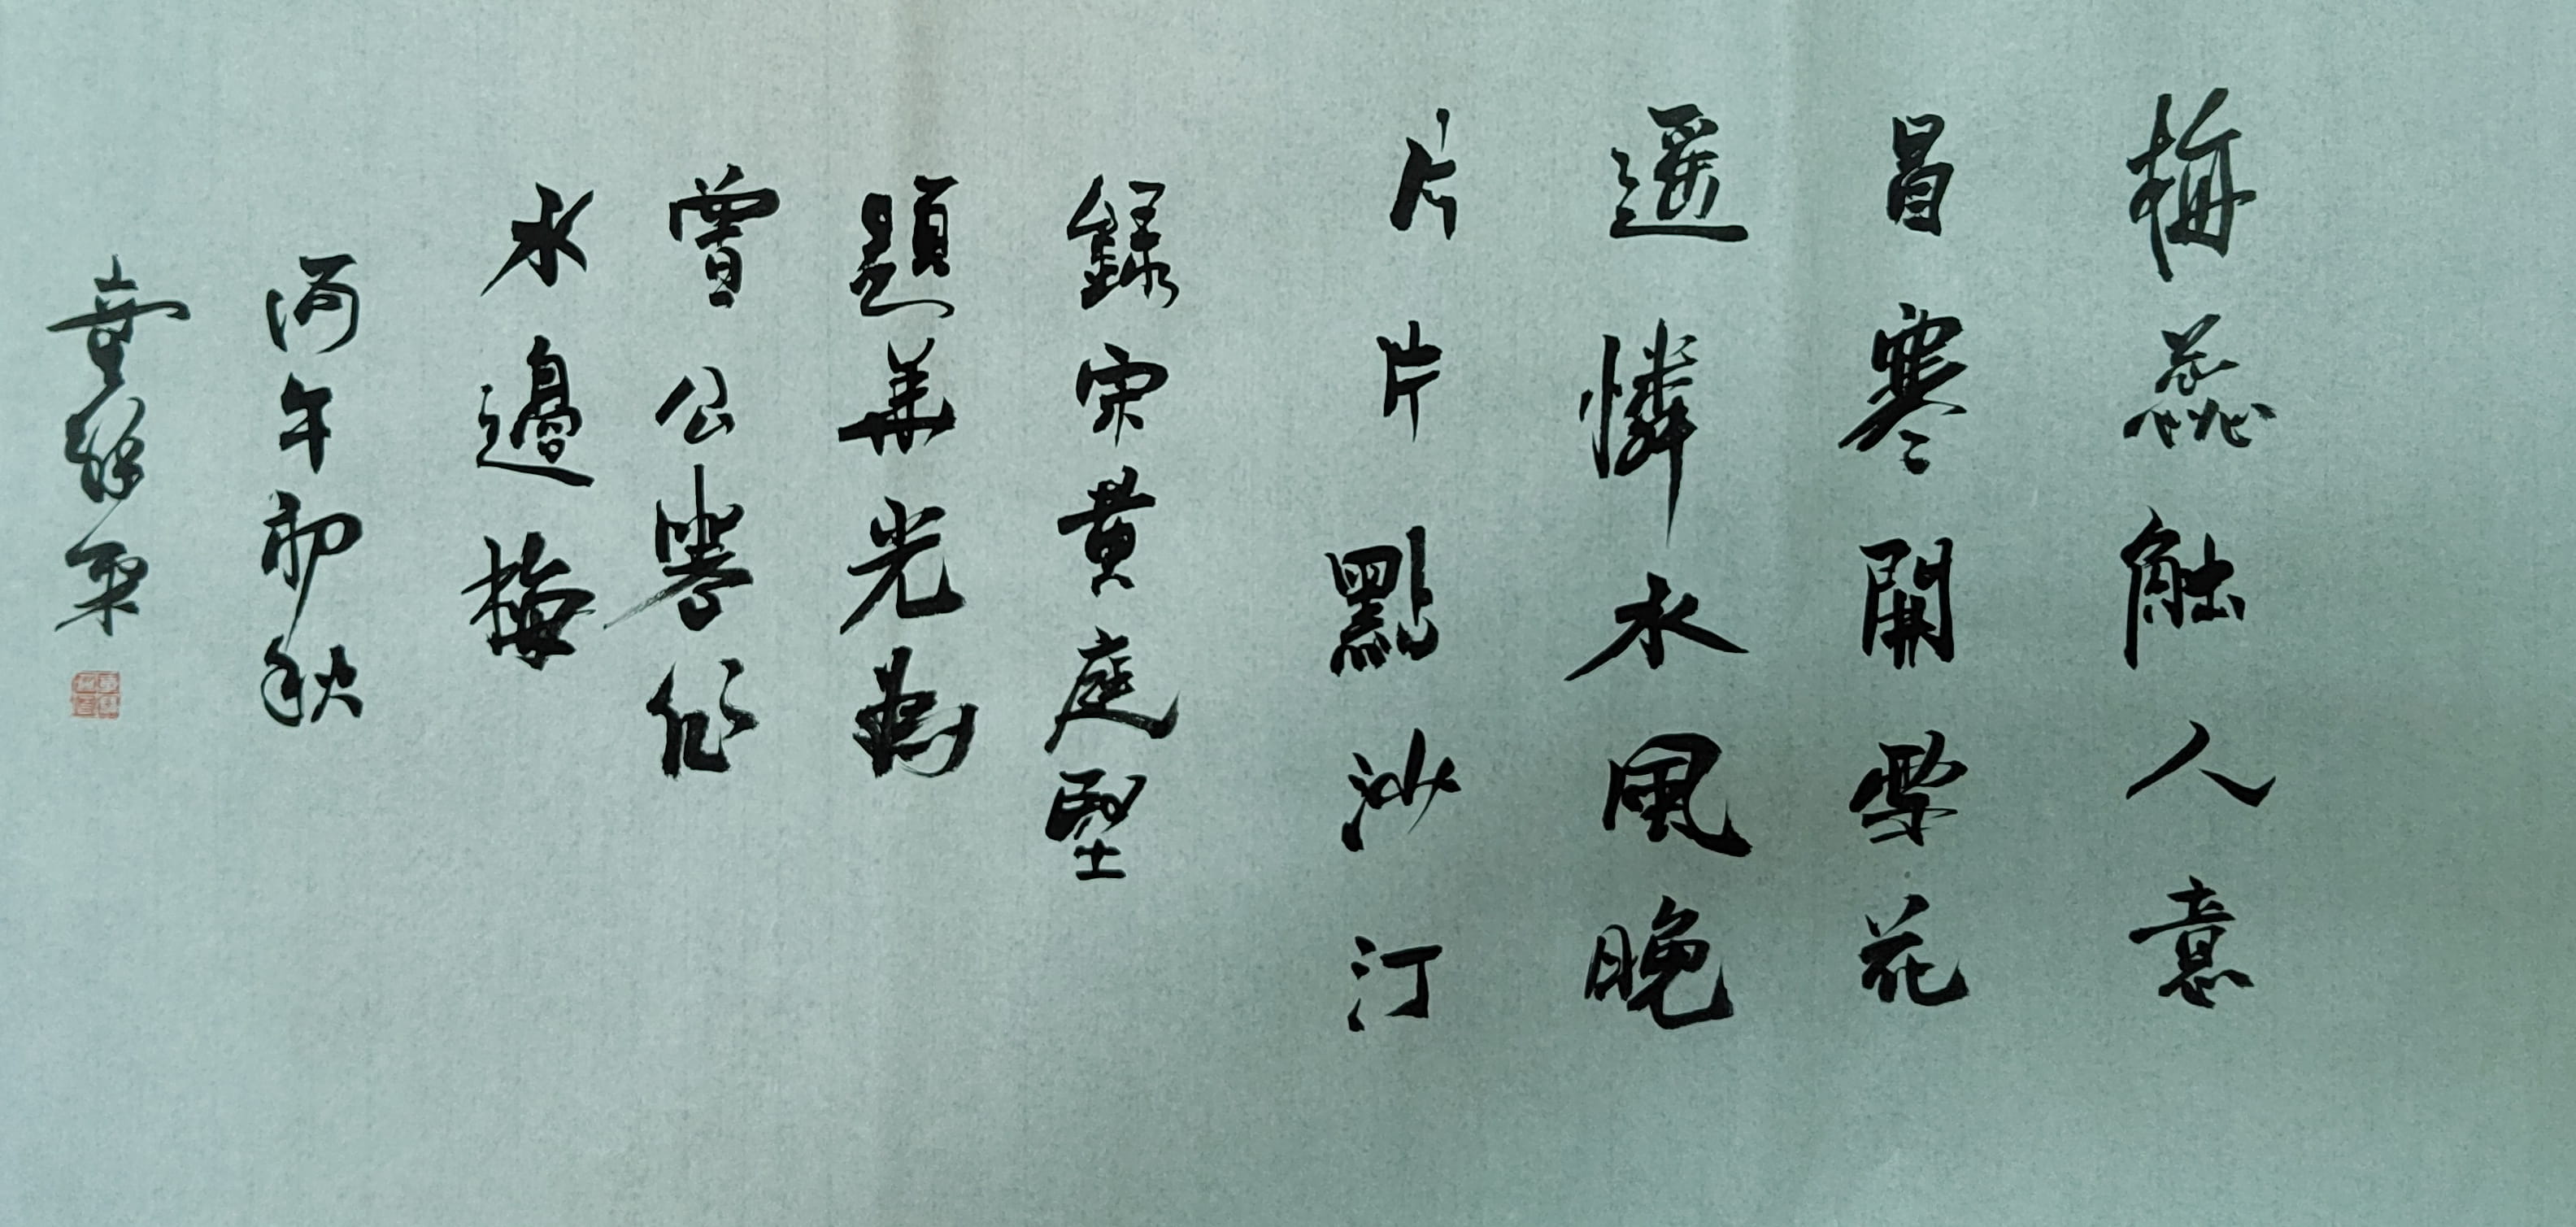 梅蕊触人意
冒寒開雪花
遥憐水風晚
片片點沙汀
録宋黄庭堅
題華光為
曾公卷作
水邊梅
丙午初秋
童